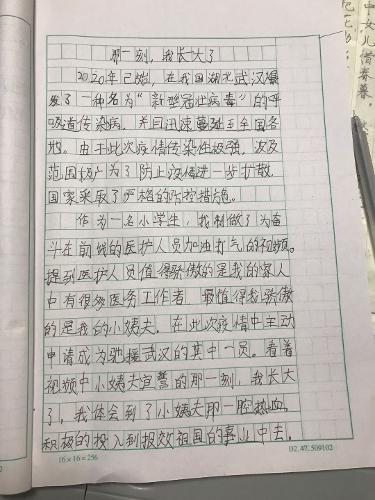 那一刻，我长大了
2020年已始，在我国湖北武汉爆
发了一种名为“新型冠壮病毒”的呼
吸道传染病，并且迅速蔓延至全国各
地。由于此次疫情传染性极强，波及
范围较广为了防止疫情进一步扩散，
国家采取了严格的防控措施。
作为一名小学生，我制做了为奋
斗在前线的医护人员加油打气的视频。
提到医护人员值得骄傲的是我的家人
中有很多医务工作者，最值得我骄傲
的是我的小姨夫。在此次疫情中主动
申请成为驰援武汉的其中一员。看着
视频中小姨夫宣誓的那一刻，我长大
了，我体会到了小姨夫那一腔热血，
积极的投入到报效祖国的事业中去。
16×16=256
02.47.509102
中女儿惜春暮，